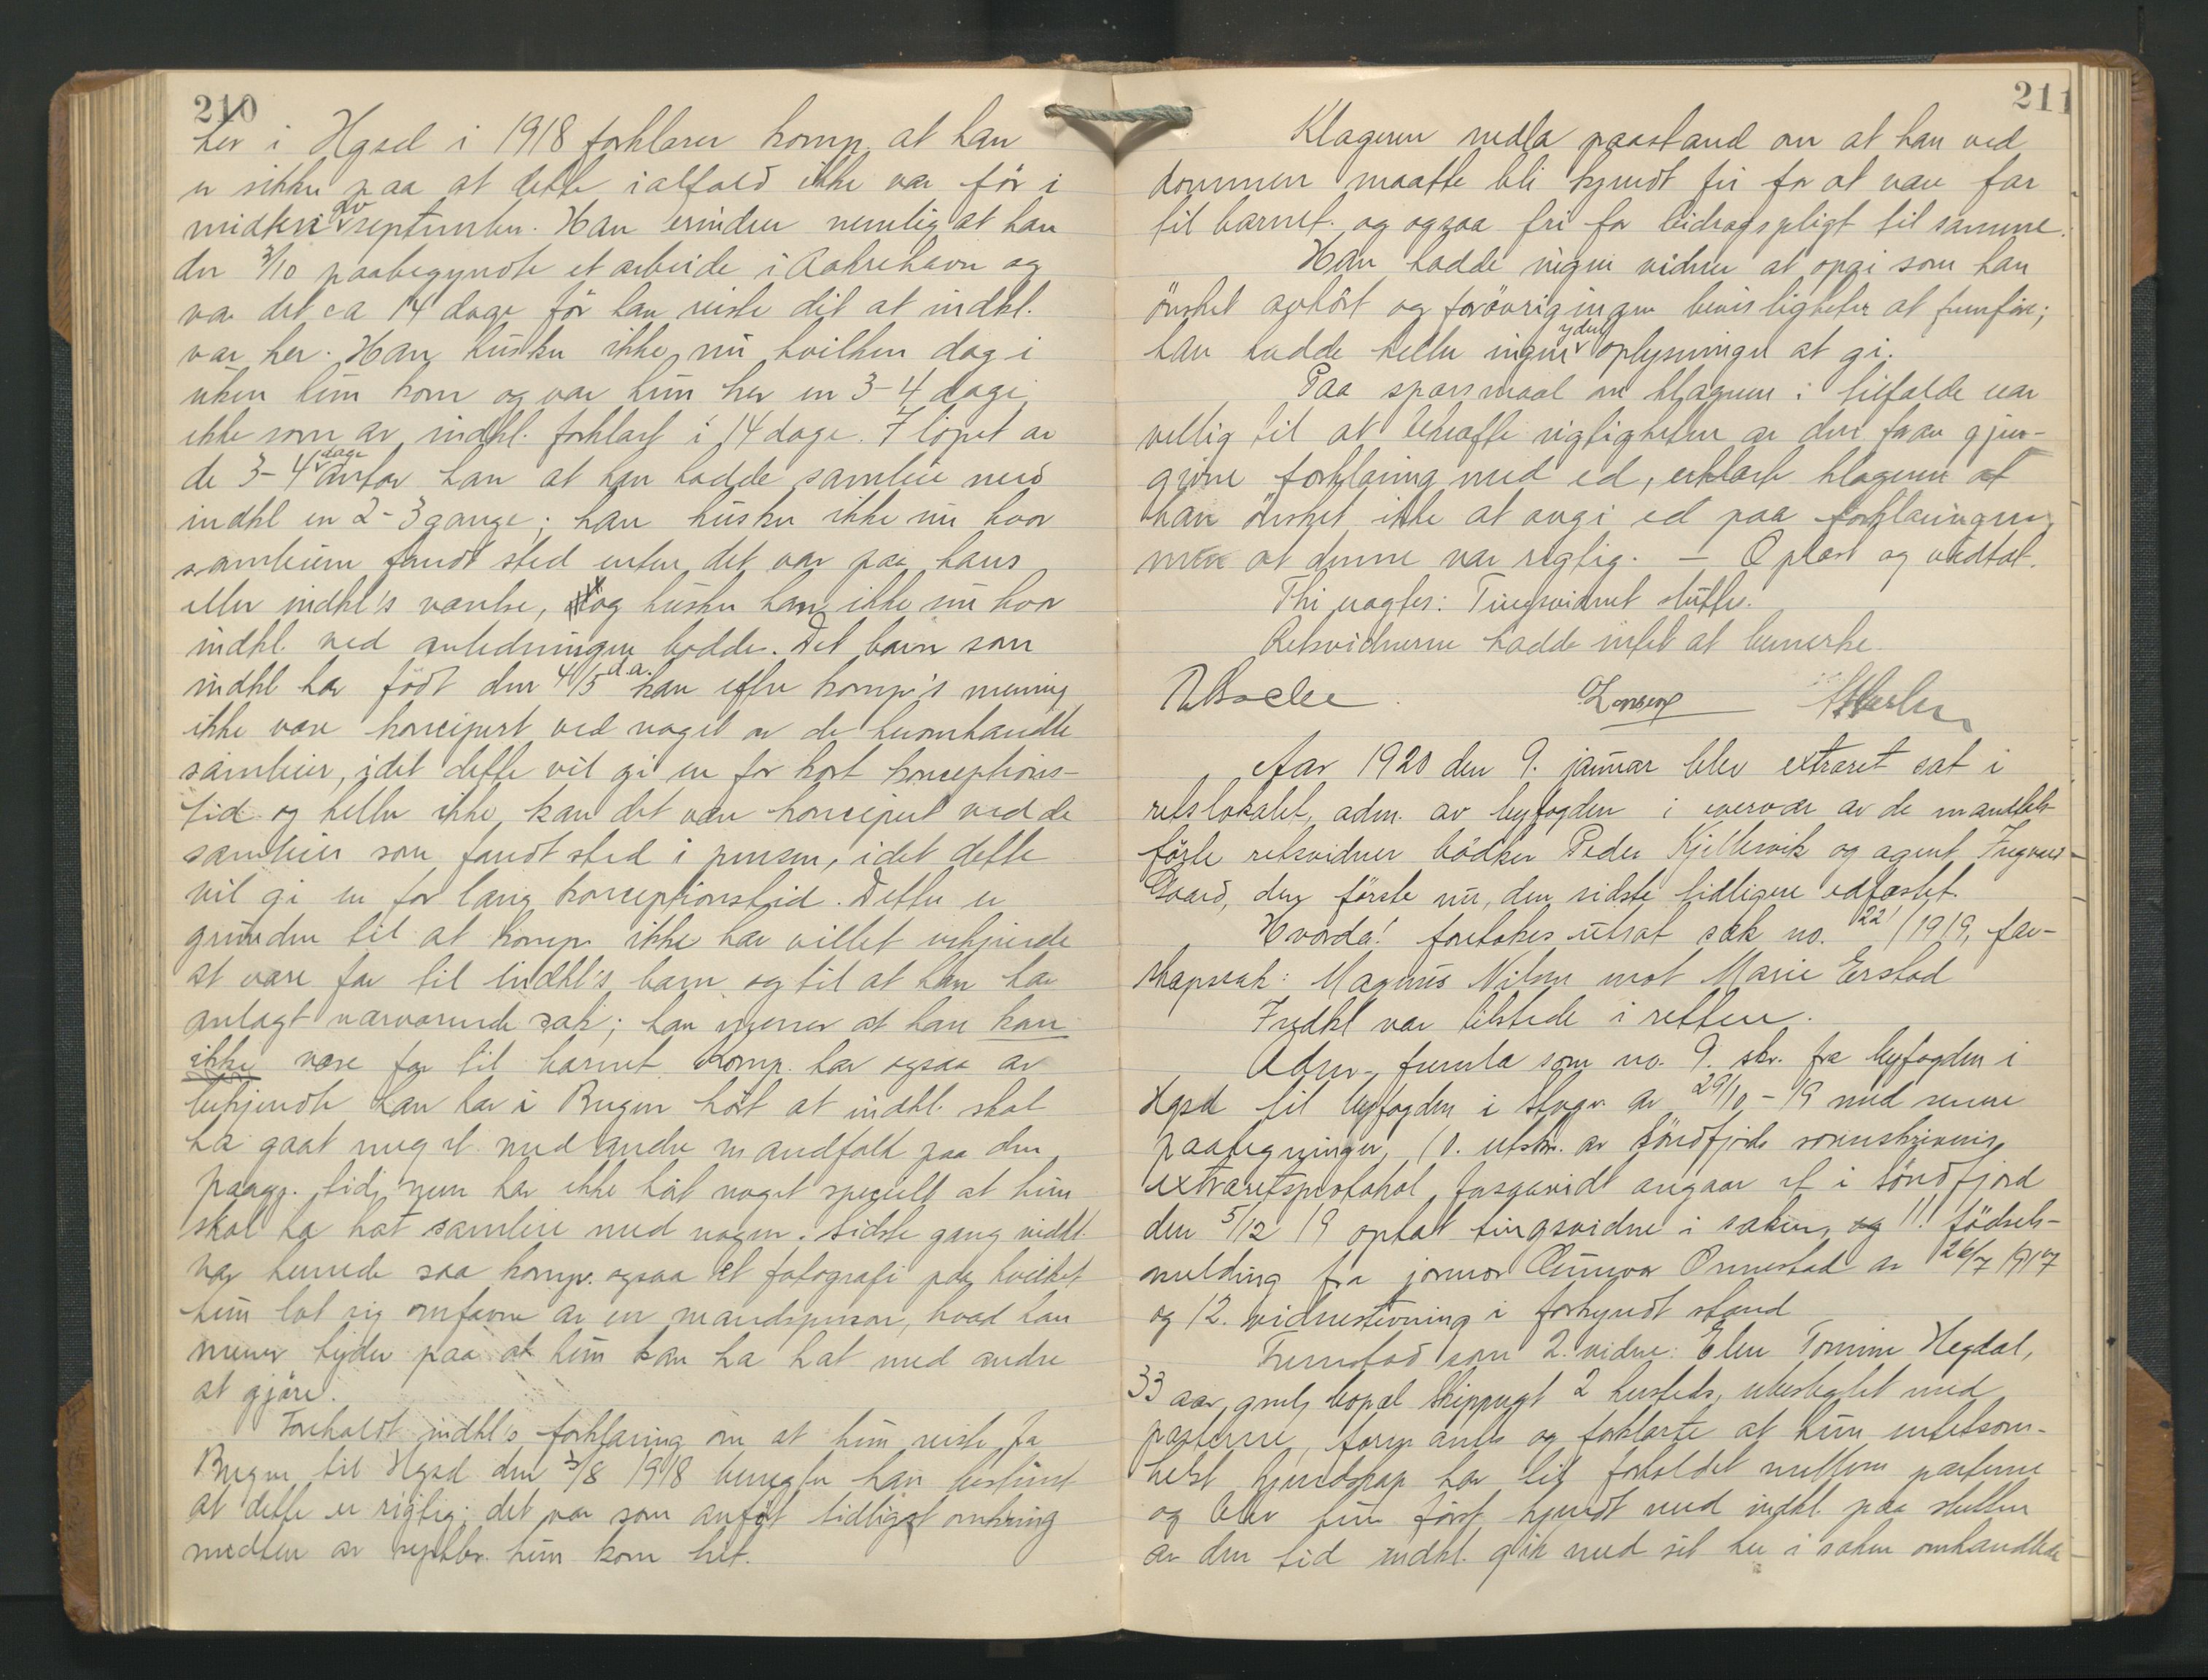 210
her i Hgsd i 1918 forklarer komp. at han
er sikker paa at dette ialfald ikke var før i
midten av september. Han erindrer nemlig at han
den 3/10 paabegyndte et arbeide i Aakrehavn og
var det ca 14 dage før han reiste dit at indkl.
var her. Han husker ikke nu hvilken dag i
uken hun kom og var hun her en 3-4 dage,
ikke som av indkl. forklart i 14 dage. I løpet av
de 3-4 dage antar han at han hadde samleie med
indkl en 2-3 gange; han husker ikke nu hvor
samleiene fandt sted enten det var paa hans
eller indkl's værelse, og husker han ikke nu hvor
indkl. ved anledningen bodde. Det barn som
indkl har født den 4/5 d.a. kan efter komp's mening
ikke være koncipert ved noget av de heromhandlte
samleier, idet dette vil gi en for kort konceptions-
tid og heller ikke kan det være koncipert ved de
samleier som fandt sted i pinsen, idet dette
vil gi en for lang konceptionstid. Dette er
grunden til at komp. ikke har villet erkjende
at være far til indkl's barn og til at han har
anlagt nærværende sak; han mener at han kan
ikke være far til barnet. Komp. har ogsaa av
bekjendte han har i Bergen hørt at indkl. skal
ha gaat meget med andre mandfolk paa den
paagj. tid, men har ikke hørt noget specielt at hun
skal ha hat samleie med nogen. Sidste gang indkl.
var hernede saa komp. ogsaa et fotografi paa hvilket
hun lot sig omfavne av en mandsperson, hvad han
mener tyder paa at hun kan ha hat med andre
at gjøre.
Foreholdt indkl's forklaring om at hun reiste fra
Bergen til Hgsd den 3/8 1918 benegter han bestemt
at dette er rigtig; det var som anført tidligst omkring
midten av septbr. hun kom hit.
211
Klageren nedla paastand om at han ved
dommen maatte bli kjendt fri for at være far
til barnet og ogsaa fri for bidragspligt til samme.
Han hadde ingen vidner at opgi som han
ønsket avhørt og forøvrig ingen bevisligheter at fremføre;
han hadde heller ingen yderl oplysninger at gi.
Paa spørsmaal om klageren i tilfælde var
villig til at bekræfte rigtigheten av den foran gjen-
givne forklaring med ed, erklærte klageren at
han ønsket ikke at avgi ed paa forklaringen,
men at denne var rigtig. - Oplæst og vedtat.
Thi vagtes: Tingsvidnet sluttes.
Retsvidnerne hadde intet at bemerke.
Aar 1920 den 9. januar blev extraret sat i
retslokalet, adm. av byfogden i overvær av de mandtals-
førte retsvidner bødker Peder Kjellesvik og agent Ingvard
Gaard, den første nu, den sidste tidligere edfæstet.
Hvorda! foretokes utsat sak no. 22/1919, far-
skapssak: Magnus Nilsen mot Marie Erstad
Indkl var tilstede i retten.
Adm. fremla som no. 9. skr. fra byfogden i
Hgsd til byfogden i Stvgr av 29/10-19 med senere
paategninger, 10. utskr. av Søndfjords sorenskriveris
extraretsprotokol forsaavidt angaar et i Søndfjord
den 5/12 19 optat tingsvidne i saken, og 11. fødsels-
melding fra jormor Gunvor Ormestad av 26/7 1917
og 12. vidnestevning i forkyndt stand
Fremstod som 2. vidne: Elen Tomine Hegdal,
33 aar, gml, bopæl Skippergt 2 hersteds, ubeslegtet med
parterne, form. anls og forklarte at hun intetsom-
helst kjendskap har til forholdet mellem parterne
og blev hun først kjendt med indkl. paa slutten
av den tid indkl. gik med sit her i saken omhandlede